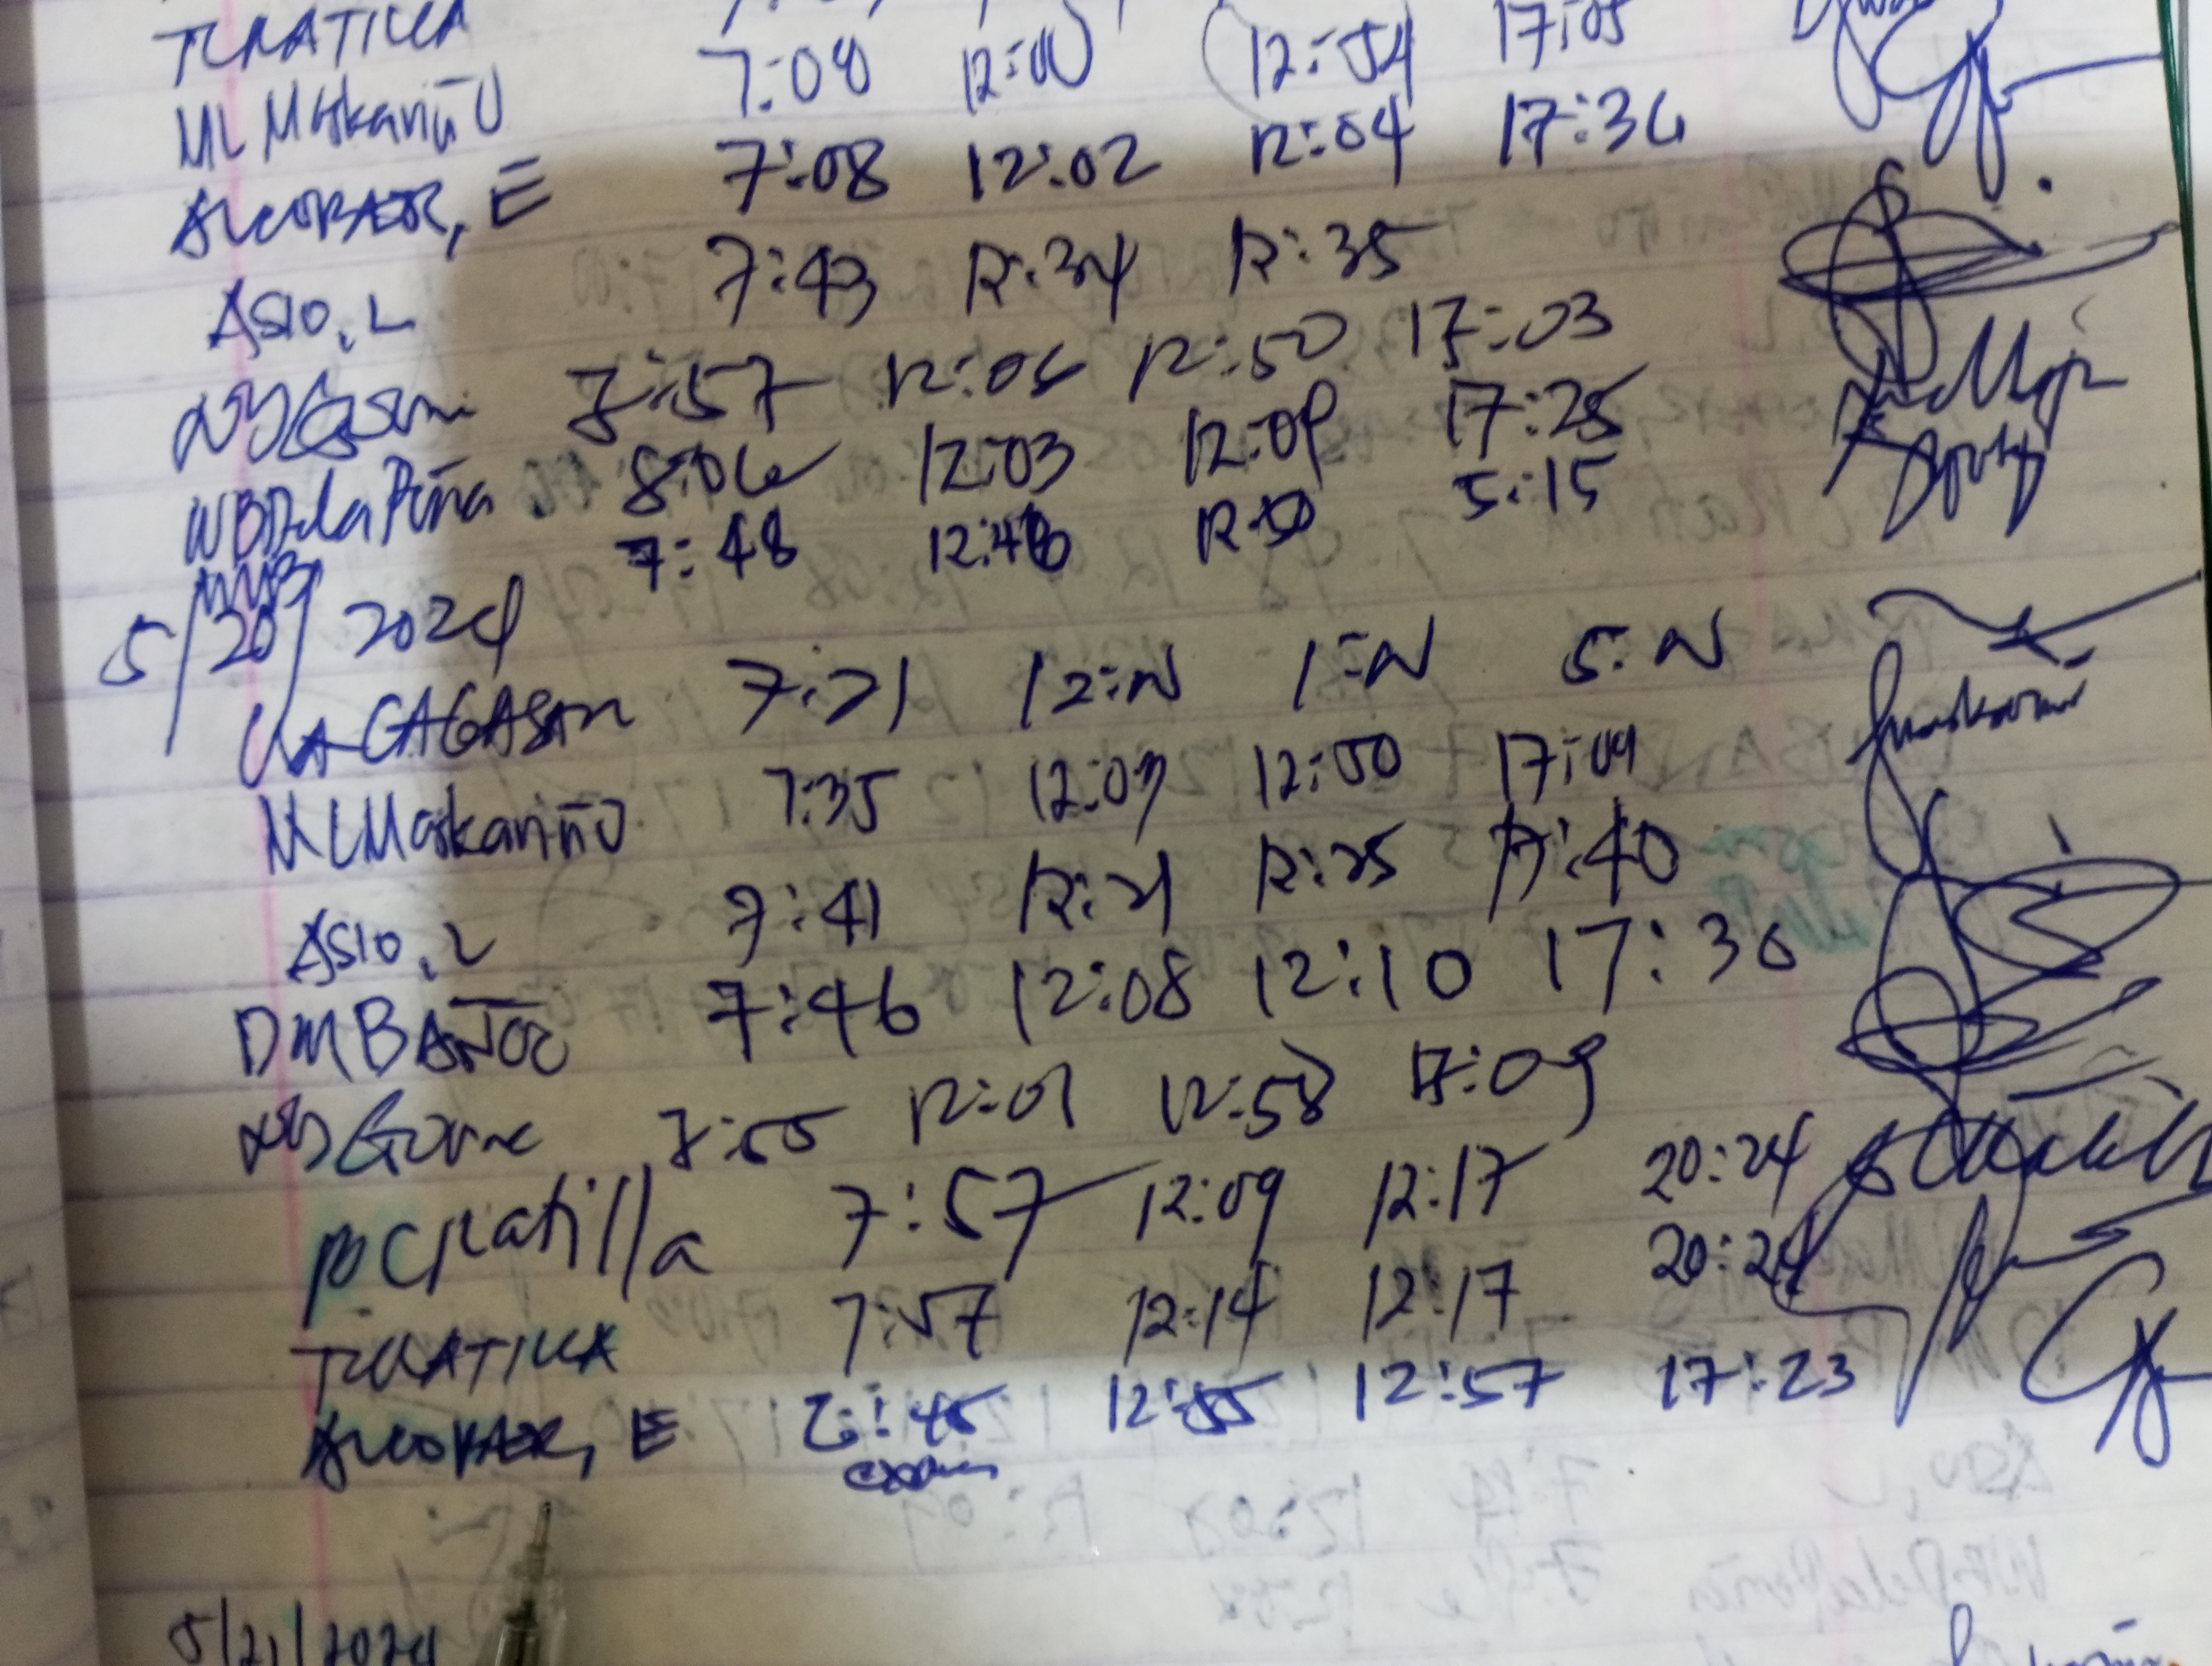 TCRATILLA
ML Maskariño 7:08 12:00 12:54 17:05
ALCOBAER, E 7:08 12:02 12:04 17:36
ASIO, L 7:43 12:34 12:35
7:57 12:06 12:50 17:03
WBDelaPeña 8:06 12:03 12:09 17:25
7:48 12:48 12:50 5:15
5/20/2024
CAGASAN 7:21 12:N 1:N 5:N
MLMaskariño 7:35 12:07 12:50 17:09
ASIO, L 7:41 12:21 12:25 17:40
DMBAÑOC 7:46 12:08 12:10 17:30
7:55 12:01 12:58 17:09
pcratilla 7:57 12:09 12:17 20:24
TCRATILLA 7:57 12:14 12:17 20:24
ALCOBAER, E 12:55 12:57 17:23
5/21/2024